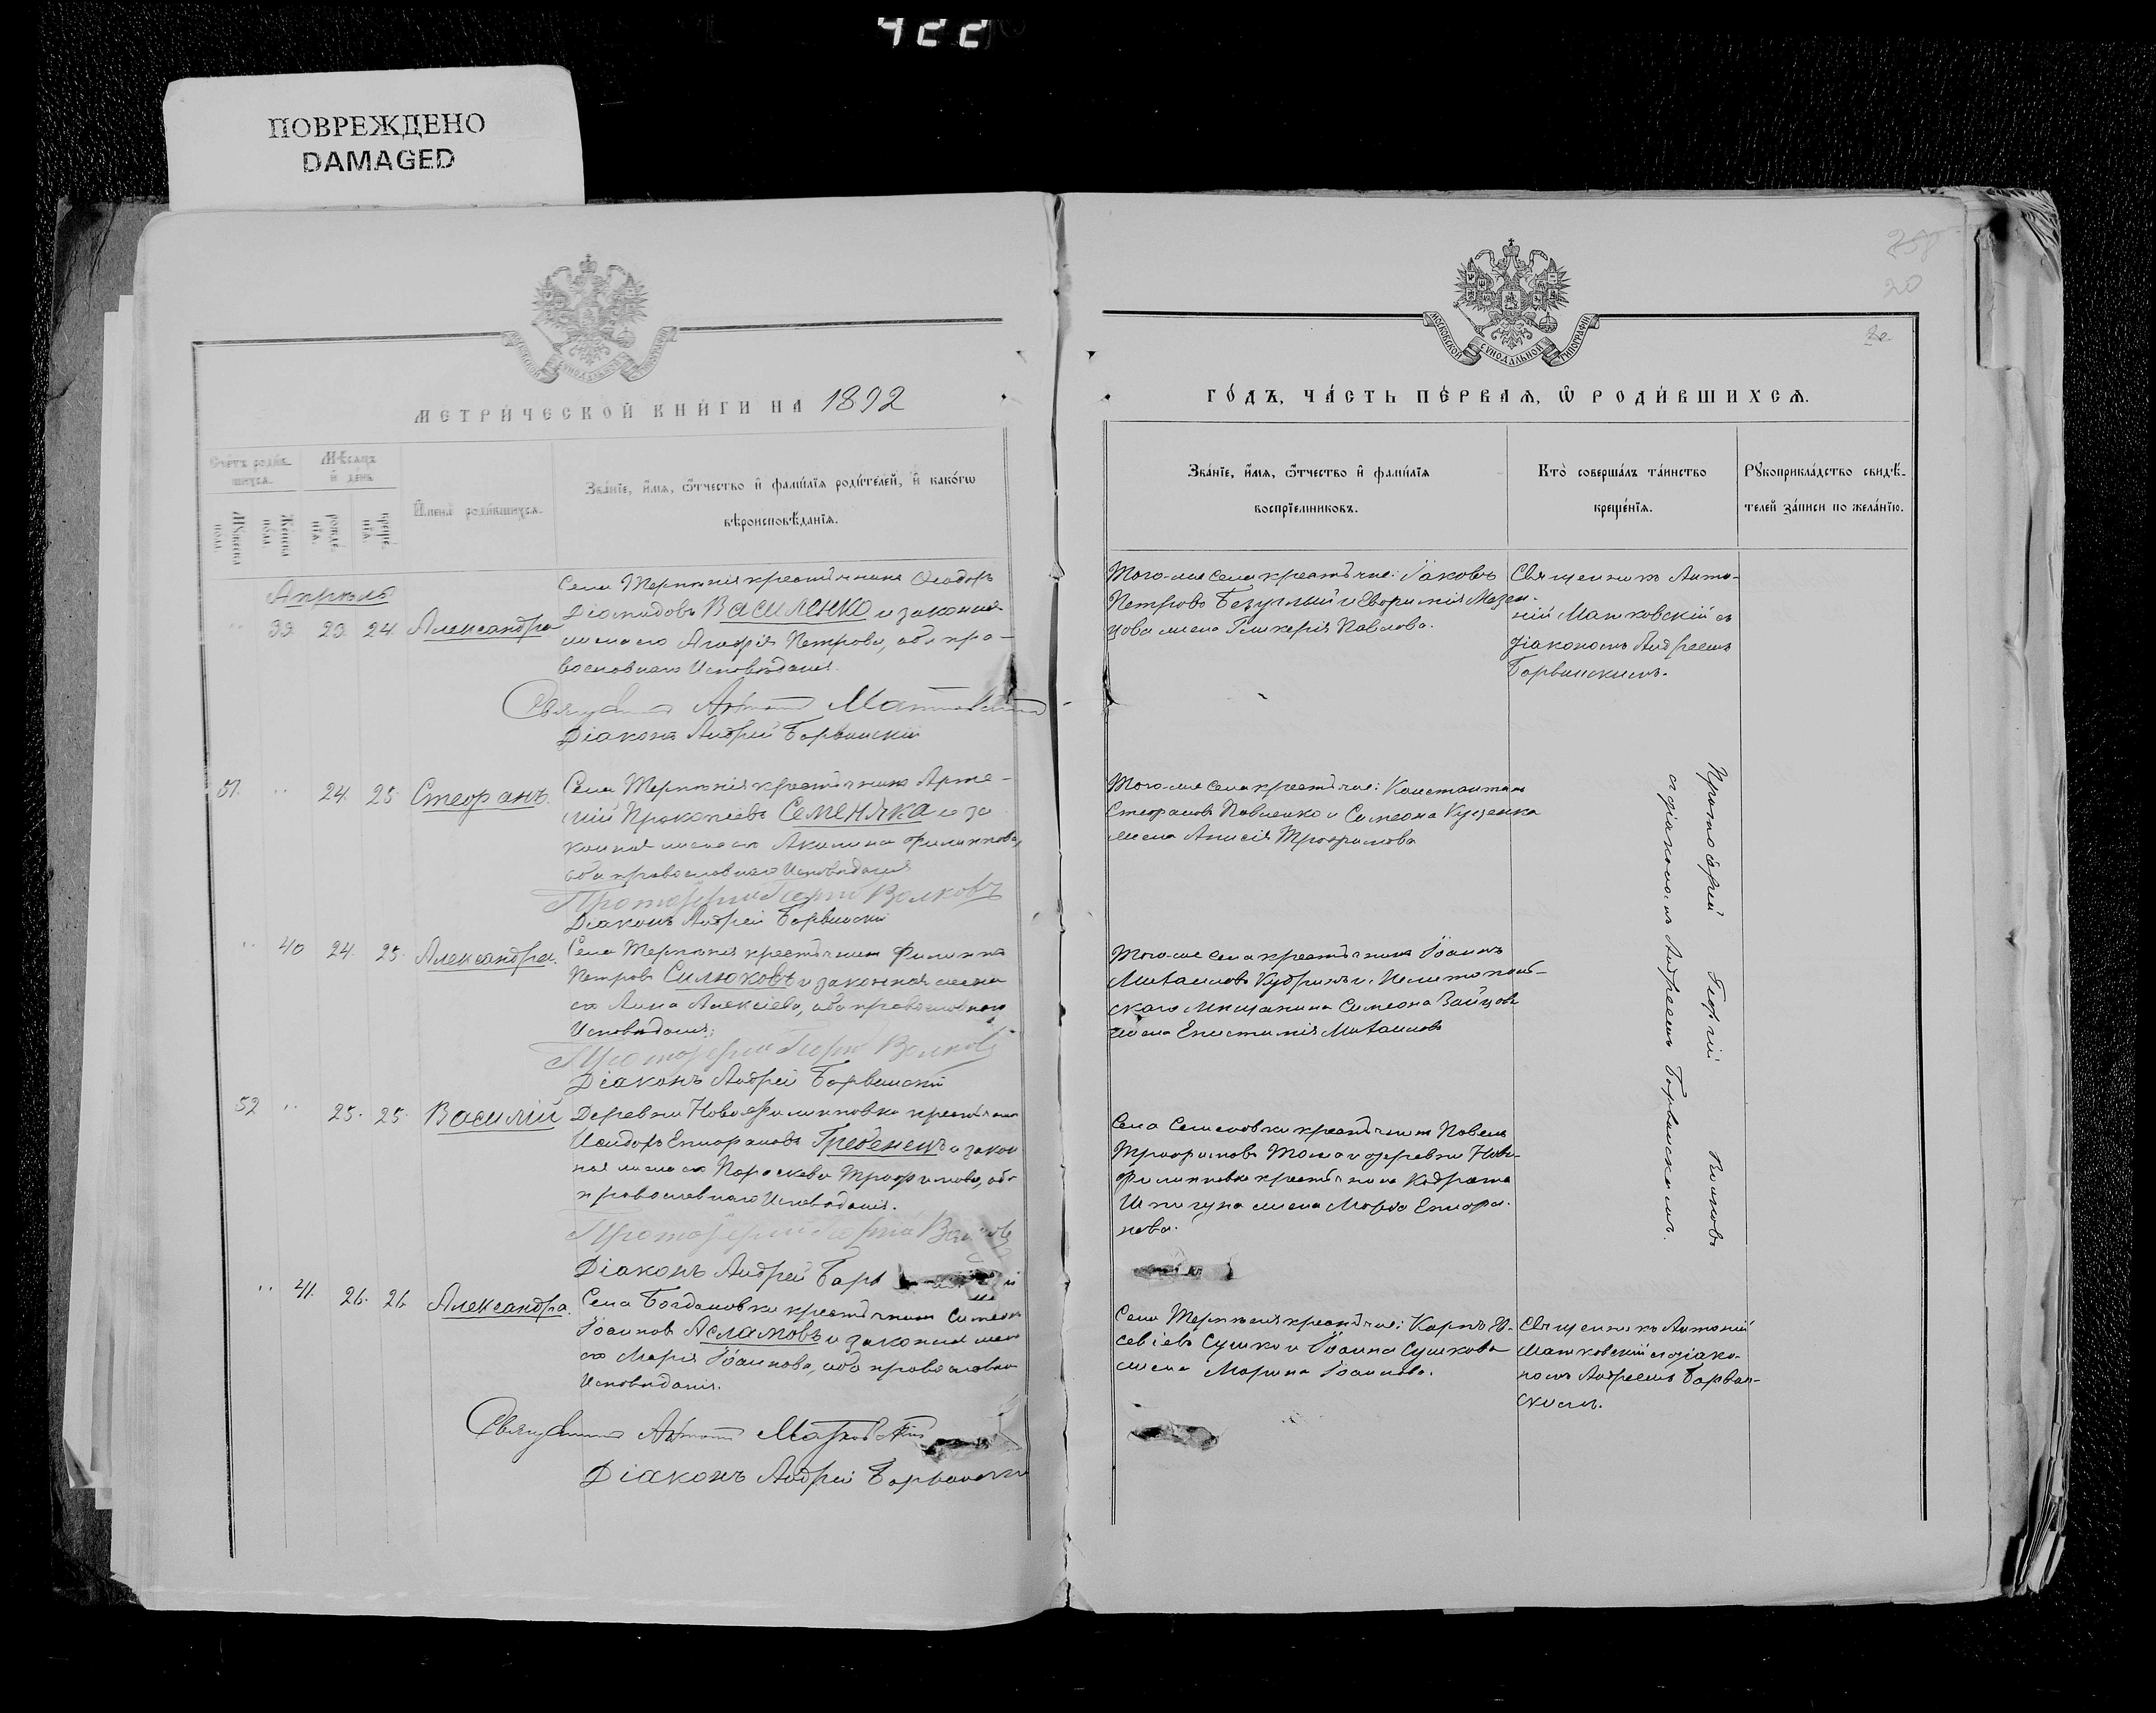 422
ПОВРЕЖДЕНО
DAMAGED
20
МЕТРИ́ЧЕСКОЙ КНИ́ГИ НА 1892
Сче́тъ роди́в-
шихся.
Мѣсяцъ
и҆ де́нь
Мꙋ́жеска
пола.
Же́нска
по́ла.
рожде́-
нїѧ.
креще́-
нїѧ.
И҆мена̀ роди́вшихсѧ.
Зва́нїе, и҆́мѧ, ѻ҆́тчество и҆ фами́лїѧ роди́телей, и҆ како́гѡ
вѣроисповѣ́данїѧ.
Апрѣль
39. 23. 24. Александра
Села Терпѣнія крестьянинъ Ѳеодоръ
Діомидовъ Василенко и законная
жена его Агафія Петрова, оба пра-
вославнаго Исповѣданія.
Священникъ Антоній Матковскій
Діаконъ Андрей Барвинскій
51. " 24. 25. Стефанъ.
Села Терпѣнія крестьянинъ Арте-
мій Прокопіевъ Семеняка и за
конная жена его Акилина Филиппова,
оба православнаго Исповѣданія
Протоіерей Георгій Волковъ
Діаконъ Андрей Барвинскій
" 40 24. 25. Александра.
Села Терпѣнія крестьянинъ Филиппъ
Петровъ Силюковъ и законная жена
его Анна Алексіева, оба православнаго
Исповѣданія;
Протоіерей Георгій Волковъ
Діаконъ Андрей Барвинскій
52 " 25. 25. Василій
Деревни Новофилипповки крестьянинъ
Исидоръ Епифановъ Гребенецъ и закон
ная жена его Параскева Трофимова, оба
православнаго Исповѣданія.
Протоіерей Георгій Волковъ
Діаконъ Андрей Барв
" 41. 26. 26. Александра.
Села Богдановки крестьянинъ Симеонъ
Іоанновъ Асламовъ и законная жена
его Марія Іоаннова, оба православнаго
Исповѣданія.
Священникъ Антоній Матковскій
Діаконъ Андрей Барвинскій
МОСКОВСКОЙ СѴНОДАЛЬНОЙ ТИПОГРАФІИ
ГО́ДЪ, ЧА́СТЬ ПЕ́РВАѦ, Ѽ РОДИ́ВШИХСѦ.
Зва́нїе, и҆́мѧ, ѻ҆́тчество и҆ фами́лїѧ
воспрїе́мниковъ.
Кто̀ соверша́лъ та́инство
креще́нїѧ.
Рꙋкоприкла́дство свидѣ́-
телей за́писи по жела́нїю.
Того-же села крестьяне: Іаковъ
Петровъ Безуглый и Евфимія Мазен-
цова жена Гликерія Павлова.
Священникъ Анто-
ній Матковскій съ
діакономъ Андреемъ
Барвинскимъ.
Того-же села крестьяне: Константинъ
Стефановъ Павленко и Симеона Куценка
жена Анисія Трофимова
Того-же села крестьянинъ Іоаннъ
Михаиловъ Кудринъ и Мелитополь-
скаго Мещанина Симеона Зайцова
жена Епистимія Михаилова
Протоіерей Георгій Волковъ
съ діакономъ Андреемъ Барвинскимъ.
Села Семеновки крестьянинъ Павелъ
Трофимовъ Тома и деревни Ново-
филипповки крестьянина Кодрата
Шпигуна жена Марѳа Епифа-
нова.
Села Терпѣнія крестьяне: Карпъ Ев-
севіевъ Сушко и Іоанна Сушкова
жена Марина Іоаннова.
Священникъ Антоній
Матковскій съ діако-
номъ Андреемъ Барвин-
скимъ.